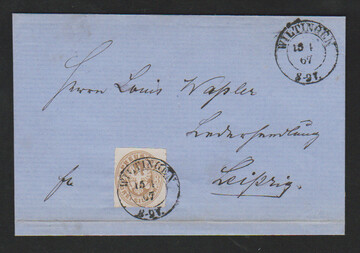 WILTINGEN
15 1
67
8-9V.
Herrn Louis
Lederhandlung
fr
Leipzig.
WILTINGEN
15 1
67
8-9V.